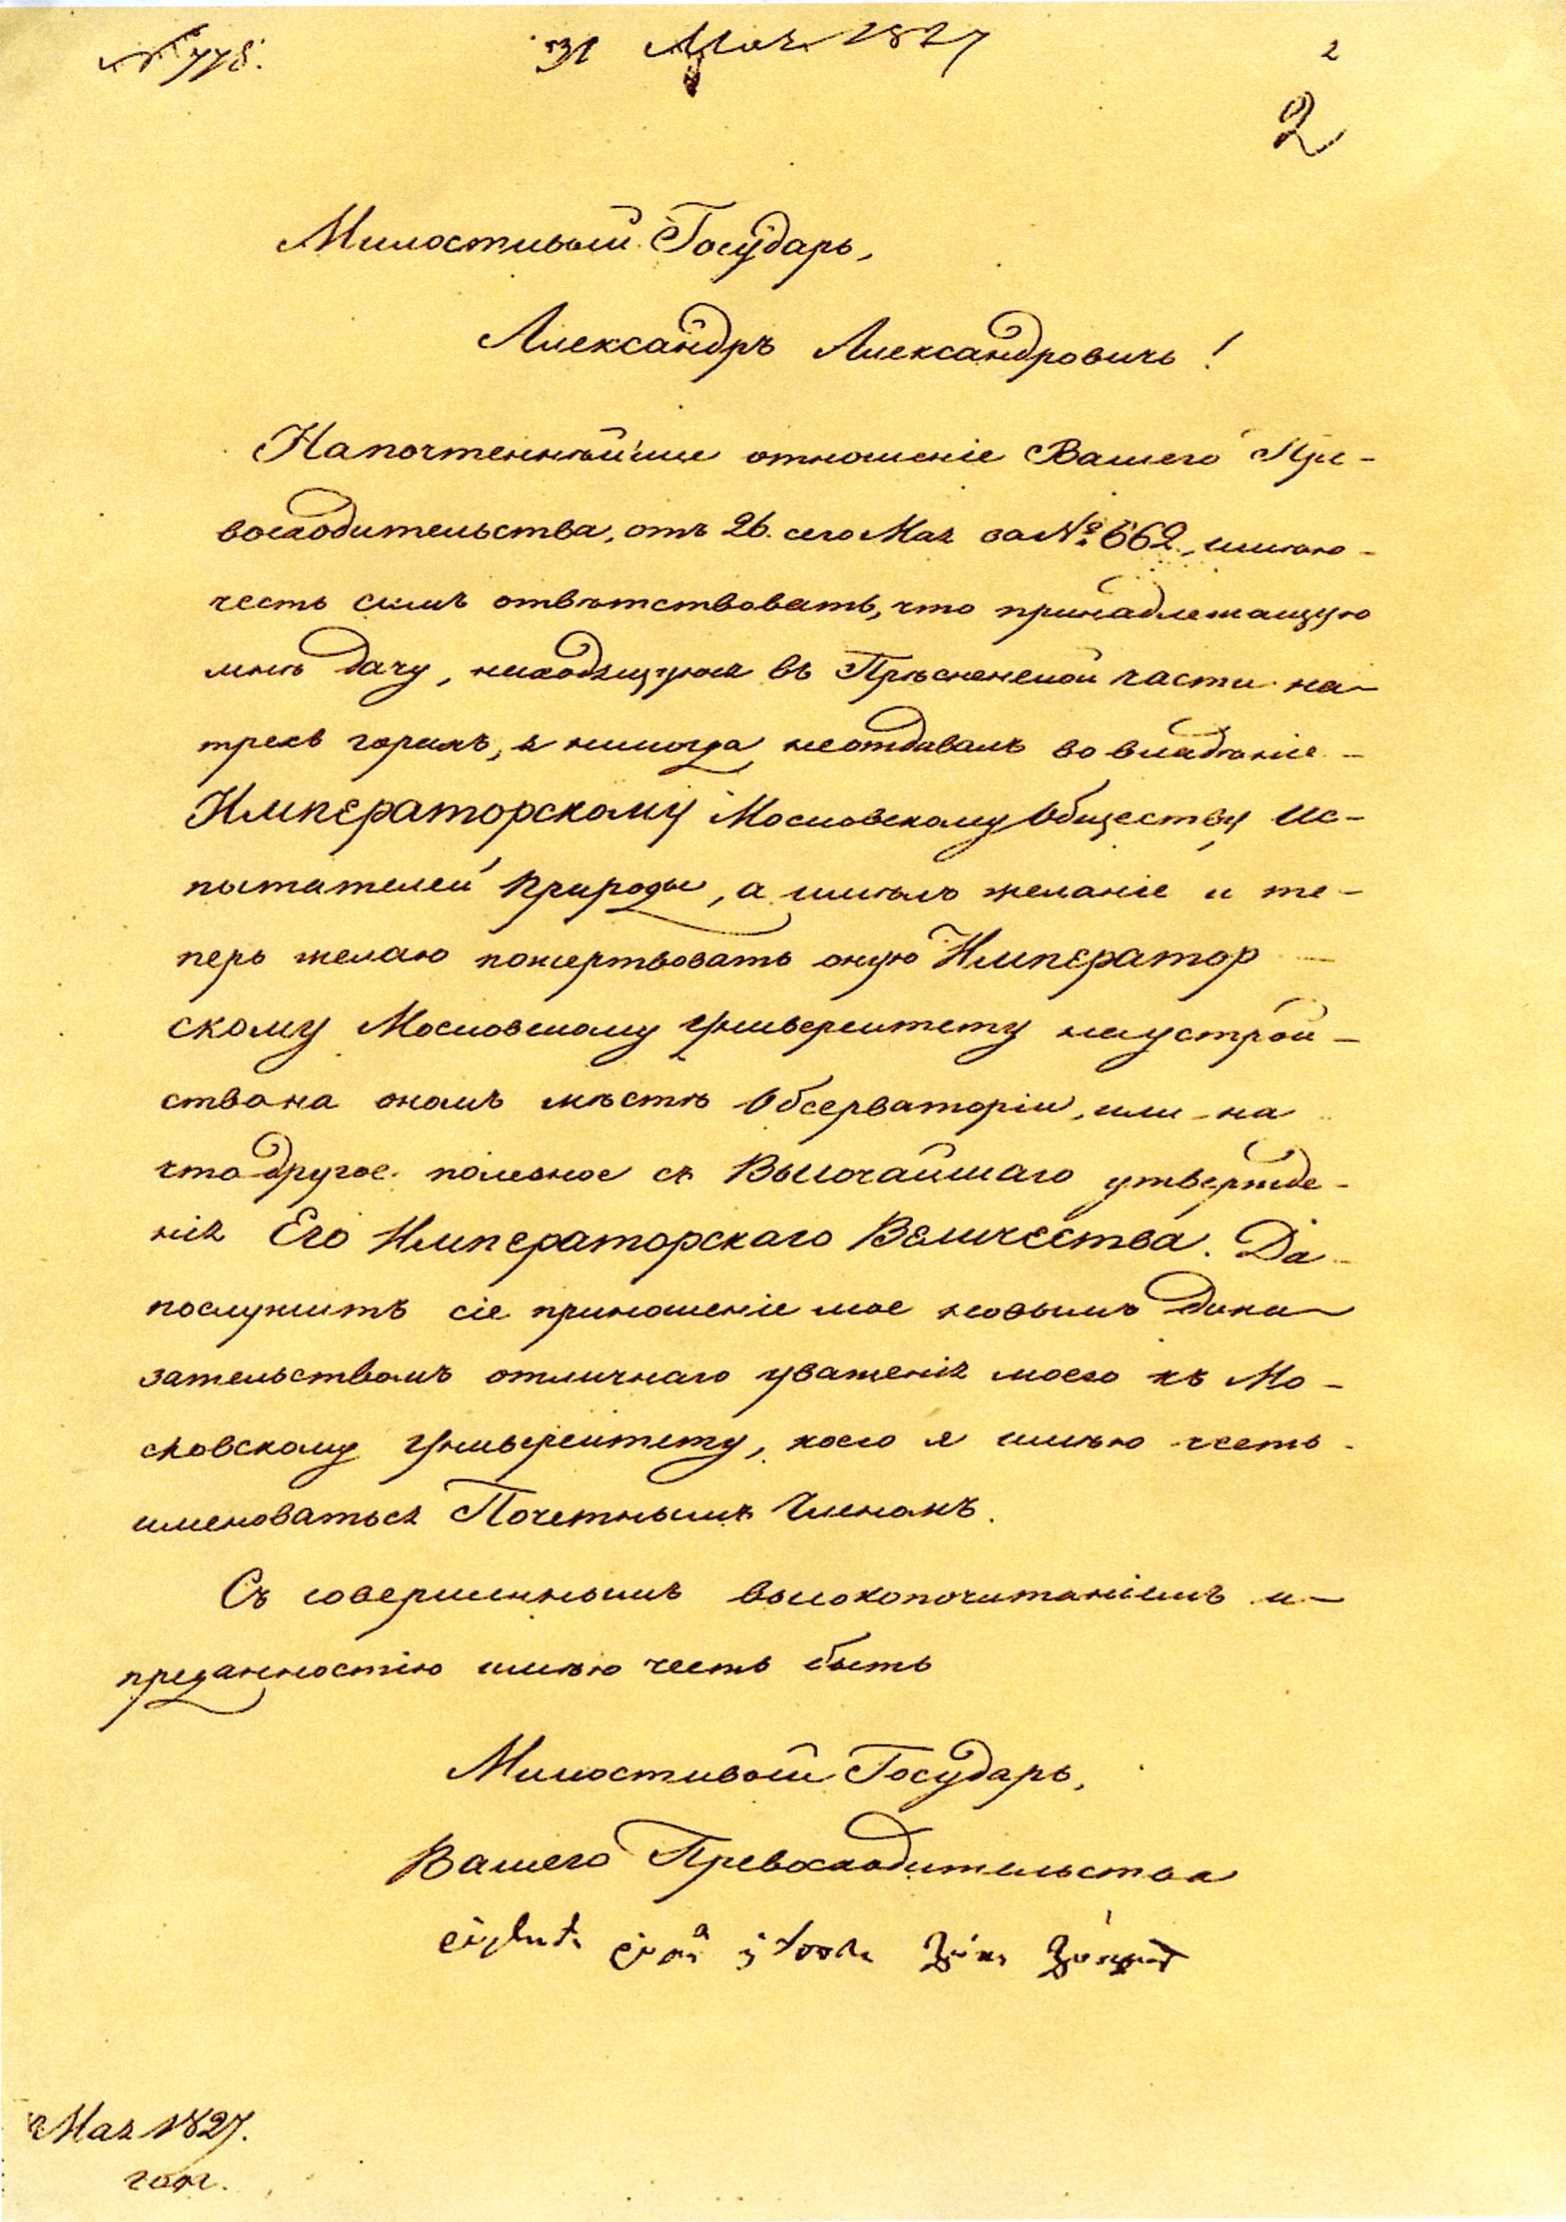 № 778.
31 Мая 1827
2
2
Милостивый Государь,
Александръ Александровичь!
На почтеннѣйшее отношеніе Вашего Пре-
восходительства, отъ 26. сего Мая за № 662, имѣю
честь симъ отвѣтствовать, что принадлежащую
мнѣ дачу, находящуюся въ Прѣсненской части на
трехъ горахъ, я никогда не отдавалъ во владѣніе
Императорскому Московскому Обществу Ис-
пытателей Природы, а имѣлъ желаніе и те-
перь желаю пожертвовать оную Император
скому Московскому Университету на устрой-
ство на ономъ мѣстѣ Обсерваторіи, или на
что другое полезное съ Высочайшаго утвержде-
нія Его Императорскаго Величества. Да
послужитъ сіе приношеніе мое новымъ дока
зательствомъ отличнаго уваженія моего къ Мо-
сковскому Университету, коего я имѣю честь
именоваться Почетнымъ Членомъ.
Съ совершеннымъ высокопочитаніемъ и
преданностію имѣю честь быть
Милостивый Государь,
Вашего Превосходительства
Мая 1827.
года.